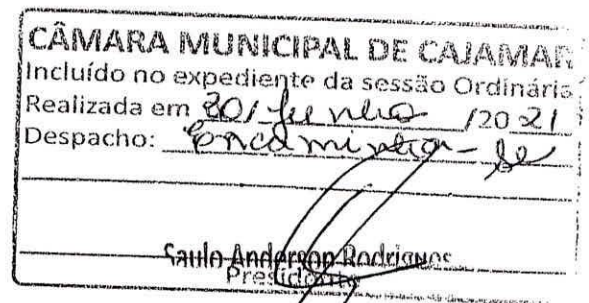 CÂMARA MUNICIPAL DE CAJAMAR
Incluído no expediente da sessão Ordinária
Realizada em 30/Junho /2021
Despacho: Encaminha-se
Saulo Anderson Rodrigues
Presidente